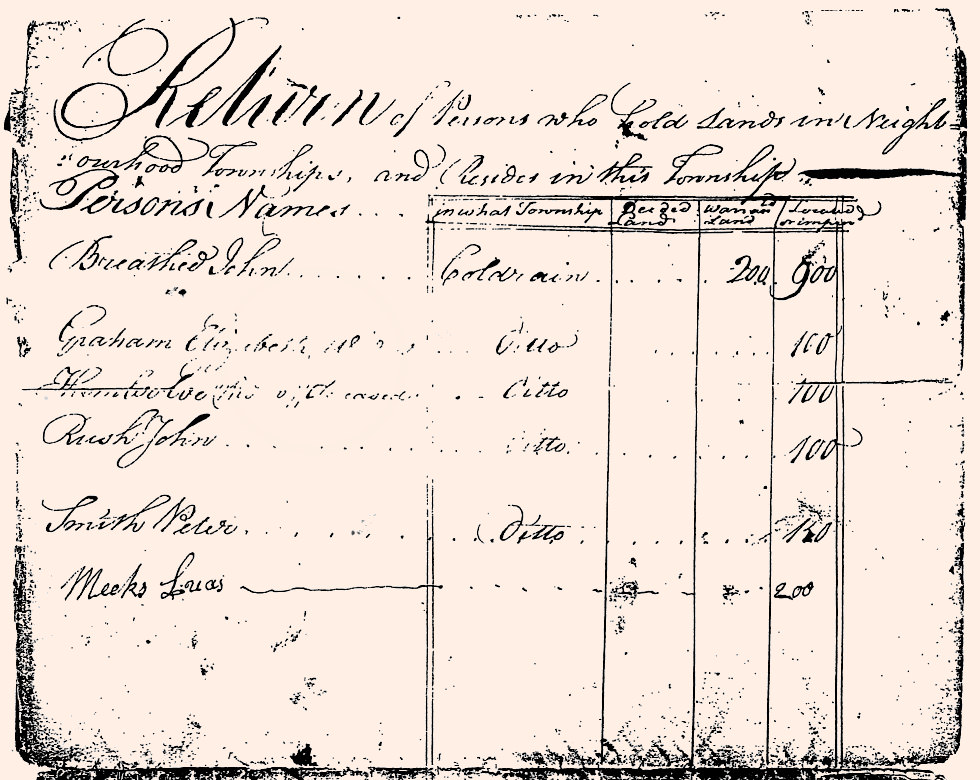 Return of Persons who hold Lands in Neigh-
:ourhood Townships, and Resides in this Township
Persons Names . . . . in what Township Deeded Land Warran.td Land Located or impr
Breathed John . . . . . . . Coldrain . . . . . . 200 . 900
Graham Elizabeth . . . Ditto . . . . . . 100
. . Ditto 100
Rush John . . . . . . . . Ditto . . . . . . . 100
Smith Peter . . . . . . . . . Ditto . . . . . . . 150
Meeks Lucas . . . . . . . 200